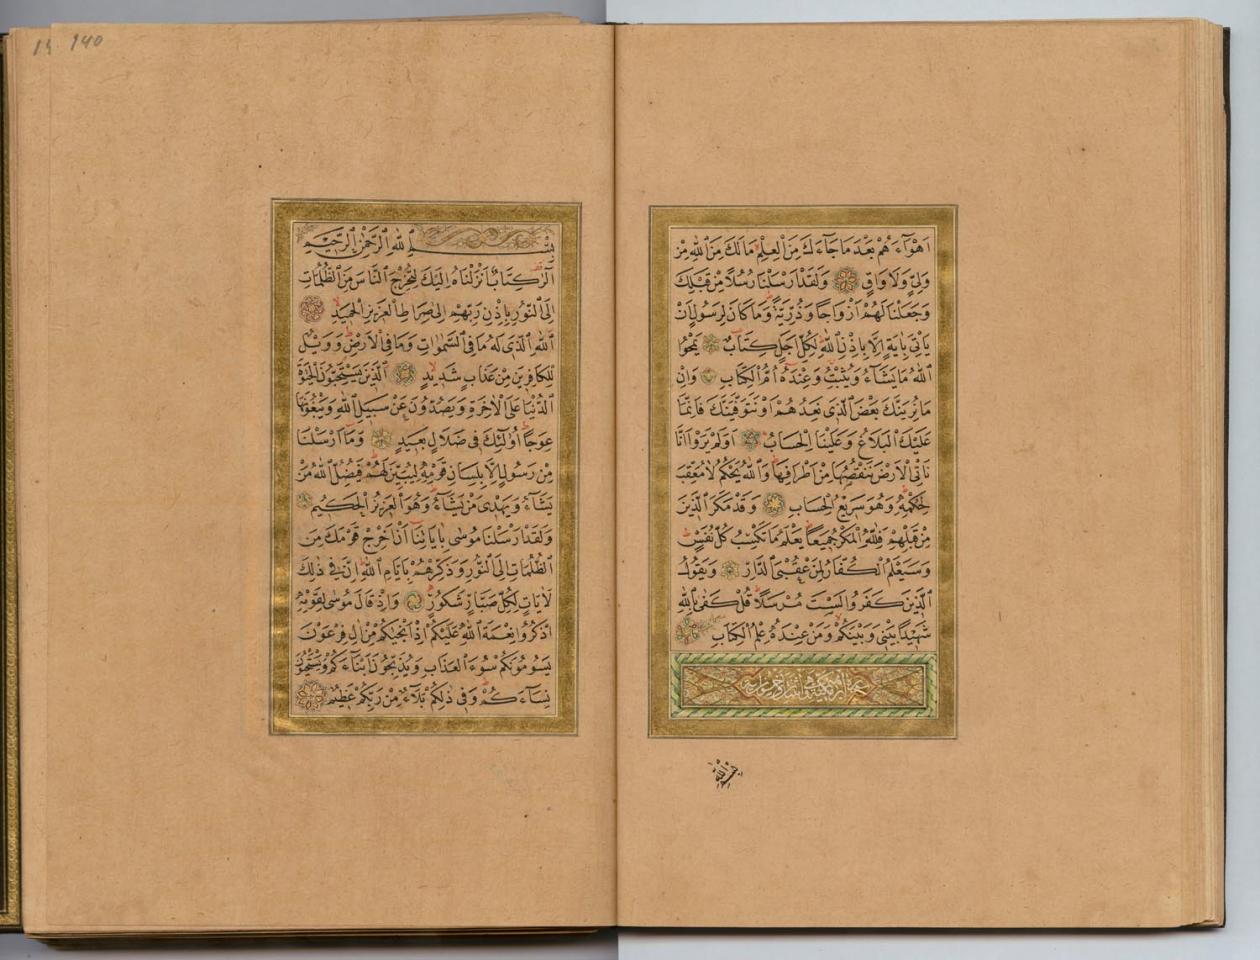 اَهْوَاۤءَهُمْ بَعْدَ مَا جَاۤءَكَ مِنَ الْعِلْمِ مَا لَكَ مِنَ اللّٰهِ مِنْ
وَلِيٍّ وَلَا وَاقٍ وَلَقَدْ اَرْسَلْنَا رُسُلًا مِنْ قَبْلِكَ
وَجَعَلْنَا لَهُمْ اَزْوَاجًا وَذُرِّيَّةً وَمَا كَانَ لِرَسُولٍ اَنْ
يَأْتِيَ بِاٰيَةٍ اِلَّا بِاِذْنِ اللّٰهِ لِكُلِّ اَجَلٍ كِتَابٌ يَمْحُوا
اللّٰهُ مَا يَشَاۤءُ وَيُثْبِتُ وَعِنْدَهُ اُمُّ الْكِتَابِ وَاِنْ
مَا نُرِيَنَّكَ بَعْضَ الَّذِي نَعِدُهُمْ اَوْ نَتَوَفَّيَنَّكَ فَاِنَّمَا
عَلَيْكَ الْبَلَاغُ وَعَلَيْنَا الْحِسَابُ اَوَلَمْ يَرَوْا اَنَّا
نَأْتِي الْاَرْضَ نَنْقُصُهَا مِنْ اَطْرَافِهَا وَاللّٰهُ يَحْكُمُ لَا مُعَقِّبَ
لِحُكْمِهِ وَهُوَ سَرِيعُ الْحِسَابِ وَقَدْ مَكَرَ الَّذِينَ
مِنْ قَبْلِهِمْ فَلِلّٰهِ الْمَكْرُ جَمِيعًا يَعْلَمُ مَا تَكْسِبُ كُلُّ نَفْسٍ
وَسَيَعْلَمُ الْكُفَّارُ لِمَنْ عُقْبَى الدَّارِ وَيَقُولُ
الَّذِينَ كَفَرُوا لَسْتَ مُرْسَلًا قُلْ كَفٰى بِاللّٰهِ
شَهِيدًا بَيْنِي وَبَيْنَكُمْ وَمَنْ عِنْدَهُ عِلْمُ الْكِتَابِ
بِسْمِ اللّٰهِ
140
بِسْمِ اللّٰهِ الرَّحْمٰنِ الرَّحِيمِ
الٓرٰ كِتَابٌ اَنْزَلْنَاهُ اِلَيْكَ لِتُخْرِجَ النَّاسَ مِنَ الظُّلُمَاتِ
اِلَى النُّورِ بِاِذْنِ رَبِّهِمْ اِلٰى صِرَاطِ الْعَزِيزِ الْحَمِيدِ
اَللّٰهِ الَّذِي لَهُ مَا فِي السَّمٰوَاتِ وَمَا فِي الْاَرْضِ وَوَيْلٌ
لِلْكَافِرِينَ مِنْ عَذَابٍ شَدِيدٍ الَّذِينَ يَسْتَحِبُّونَ الْحَيٰوةَ
الدُّنْيَا عَلَى الْاٰخِرَةِ وَيَصُدُّونَ عَنْ سَبِيلِ اللّٰهِ وَيَبْغُونَهَا
عِوَجًا اُولٰۤئِكَ فِي ضَلَالٍ بَعِيدٍ وَمَا اَرْسَلْنَا
مِنْ رَسُولٍ اِلَّا بِلِسَانِ قَوْمِهِ لِيُبَيِّنَ لَهُمْ فَيُضِلُّ اللّٰهُ مَنْ
يَشَاۤءُ وَيَهْدِي مَنْ يَشَاۤءُ وَهُوَ الْعَزِيزُ الْحَكِيمُ
وَلَقَدْ اَرْسَلْنَا مُوسٰى بِاٰيَاتِنَا اَنْ اَخْرِجْ قَوْمَكَ مِنَ
الظُّلُمَاتِ اِلَى النُّورِ وَذَكِّرْهُمْ بِاَيَّامِ اللّٰهِ اِنَّ فِي ذٰلِكَ
لَاٰيَاتٍ لِكُلِّ صَبَّارٍ شَكُورٍ وَاِذْ قَالَ مُوسٰى لِقَوْمِهِ
اذْكُرُوا نِعْمَةَ اللّٰهِ عَلَيْكُمْ اِذْ اَنْجٰيكُمْ مِنْ اٰلِ فِرْعَوْنَ
يَسُومُونَكُمْ سُوۤءَ الْعَذَابِ وَيُذَبِّحُونَ اَبْنَاۤءَكُمْ وَيَسْتَحْيُونَ
نِسَاۤءَكُمْ وَفِي ذٰلِكُمْ بَلَاۤءٌ مِنْ رَبِّكُمْ عَظِيمٌ